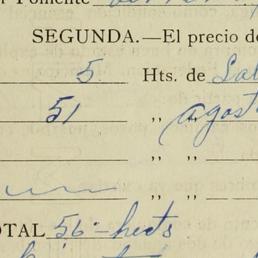 Fomento
SEGUNDA.—El precio de
5 Hts. de Sal
51 ,, agost
,, ,,
,, ,,
TOTAL 56 - hects